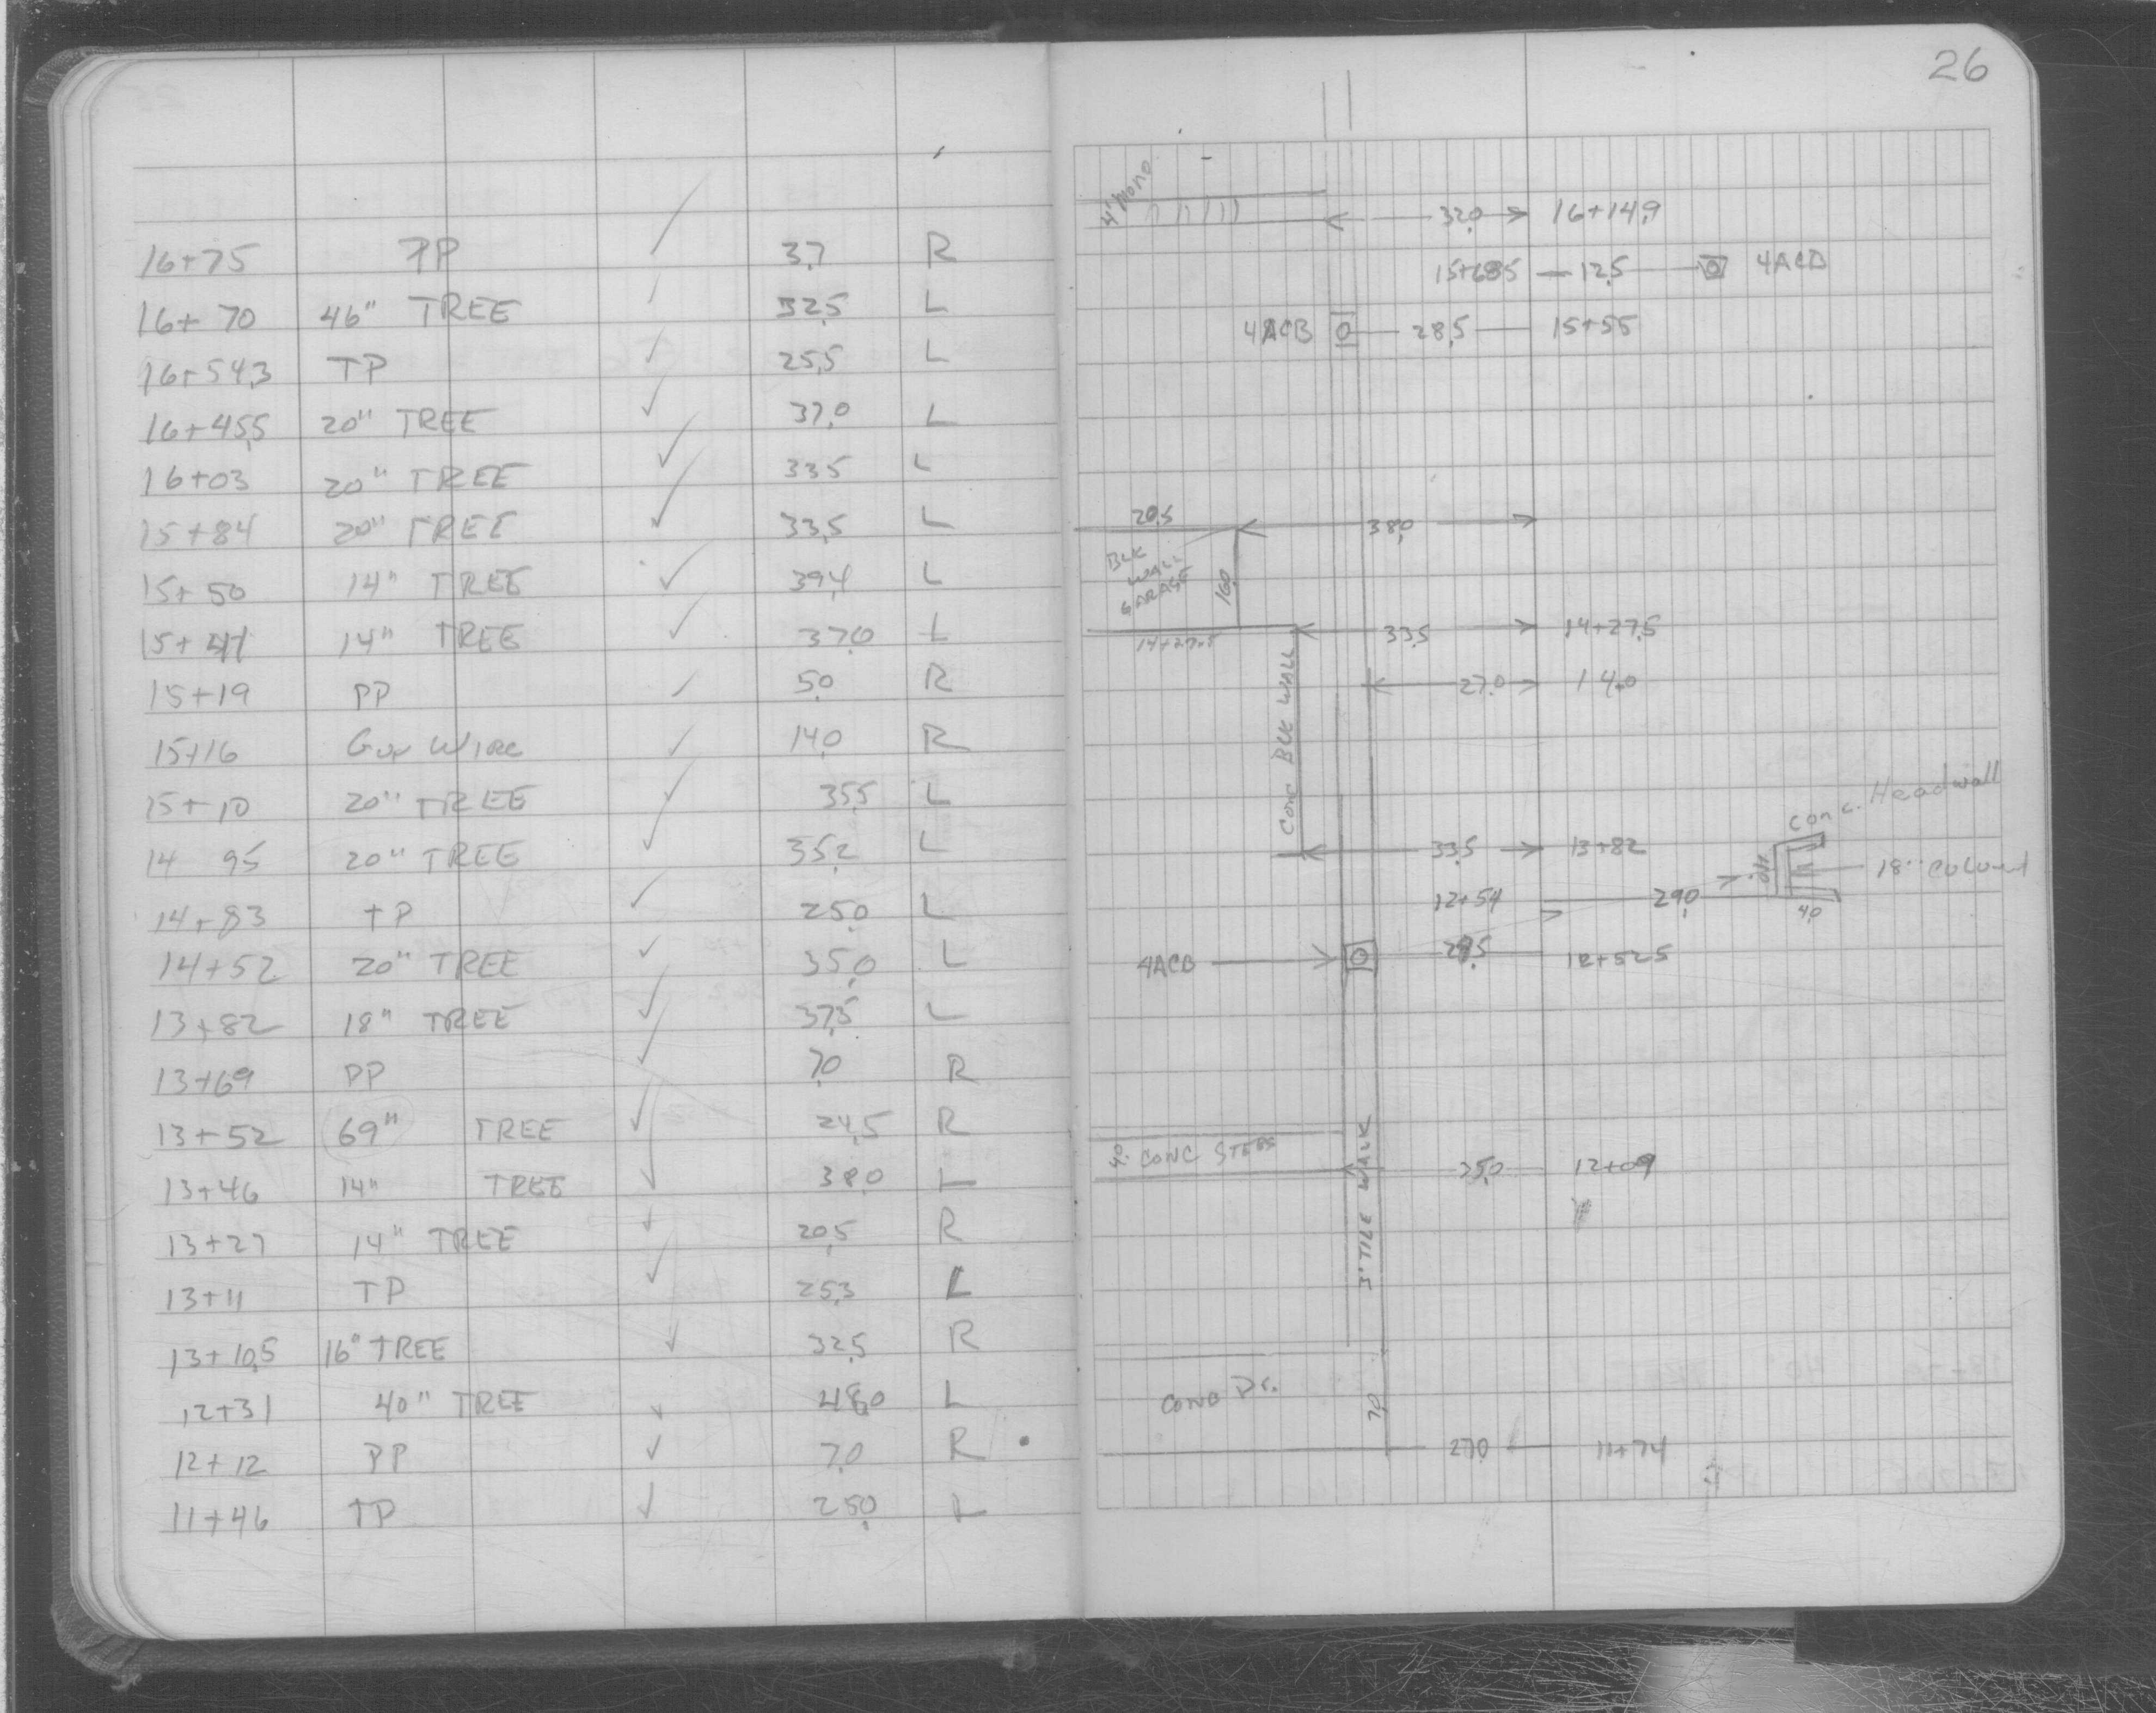 26
16+75 PP 3.7 R
16+70 46" TREE 32.5 L
16+54.3 TP 25.5 L
16+45.5 20" TREE 37.0 L
16+03 20" TREE 33.5 L
15+84 20" TREE 33.5 L
15+50 14" TREE 39.4 L
15+41 14" TREE 37.0 L
15+19 PP 5.0 R
15+16 Guy Wire 14.0 R
15+10 20" TREE 35.5 L
14 95 20" TREE 35.2 L
14+83 TP 25.0 L
14+52 20" TREE 35.0 L
13+82 18" TREE 37.5 L
13+69 PP 7.0 R
13+52 69" TREE 24.5 R
13+46 14" TREE 38.0 L
13+27 14" TREE 20.5 R
13+11 TP 25.3 L
13+10.5 16" TREE 32.5 R
12+31 40" TREE 48.0 L
12+12 PP 7.0 R
11+46 TP 25.0 L
4' Mono
32.0 16+14.9
15+68.5 12.5 4ACB
4ACB 28.5 15+55
20.5 38.0
BLK WALL GARAGE 16.0
14+27.5 33.5 14+27.5
27.0 14+0
Conc BLK WALL
Conc. Headwall
33.5 13+82
18"
12+54 29.0 4.0
4ACB 12+52.5
4.0 CONC STEPS 35.0 12+09
3' TILE WALK
Conc Dr.
7.0
27.0 11+74